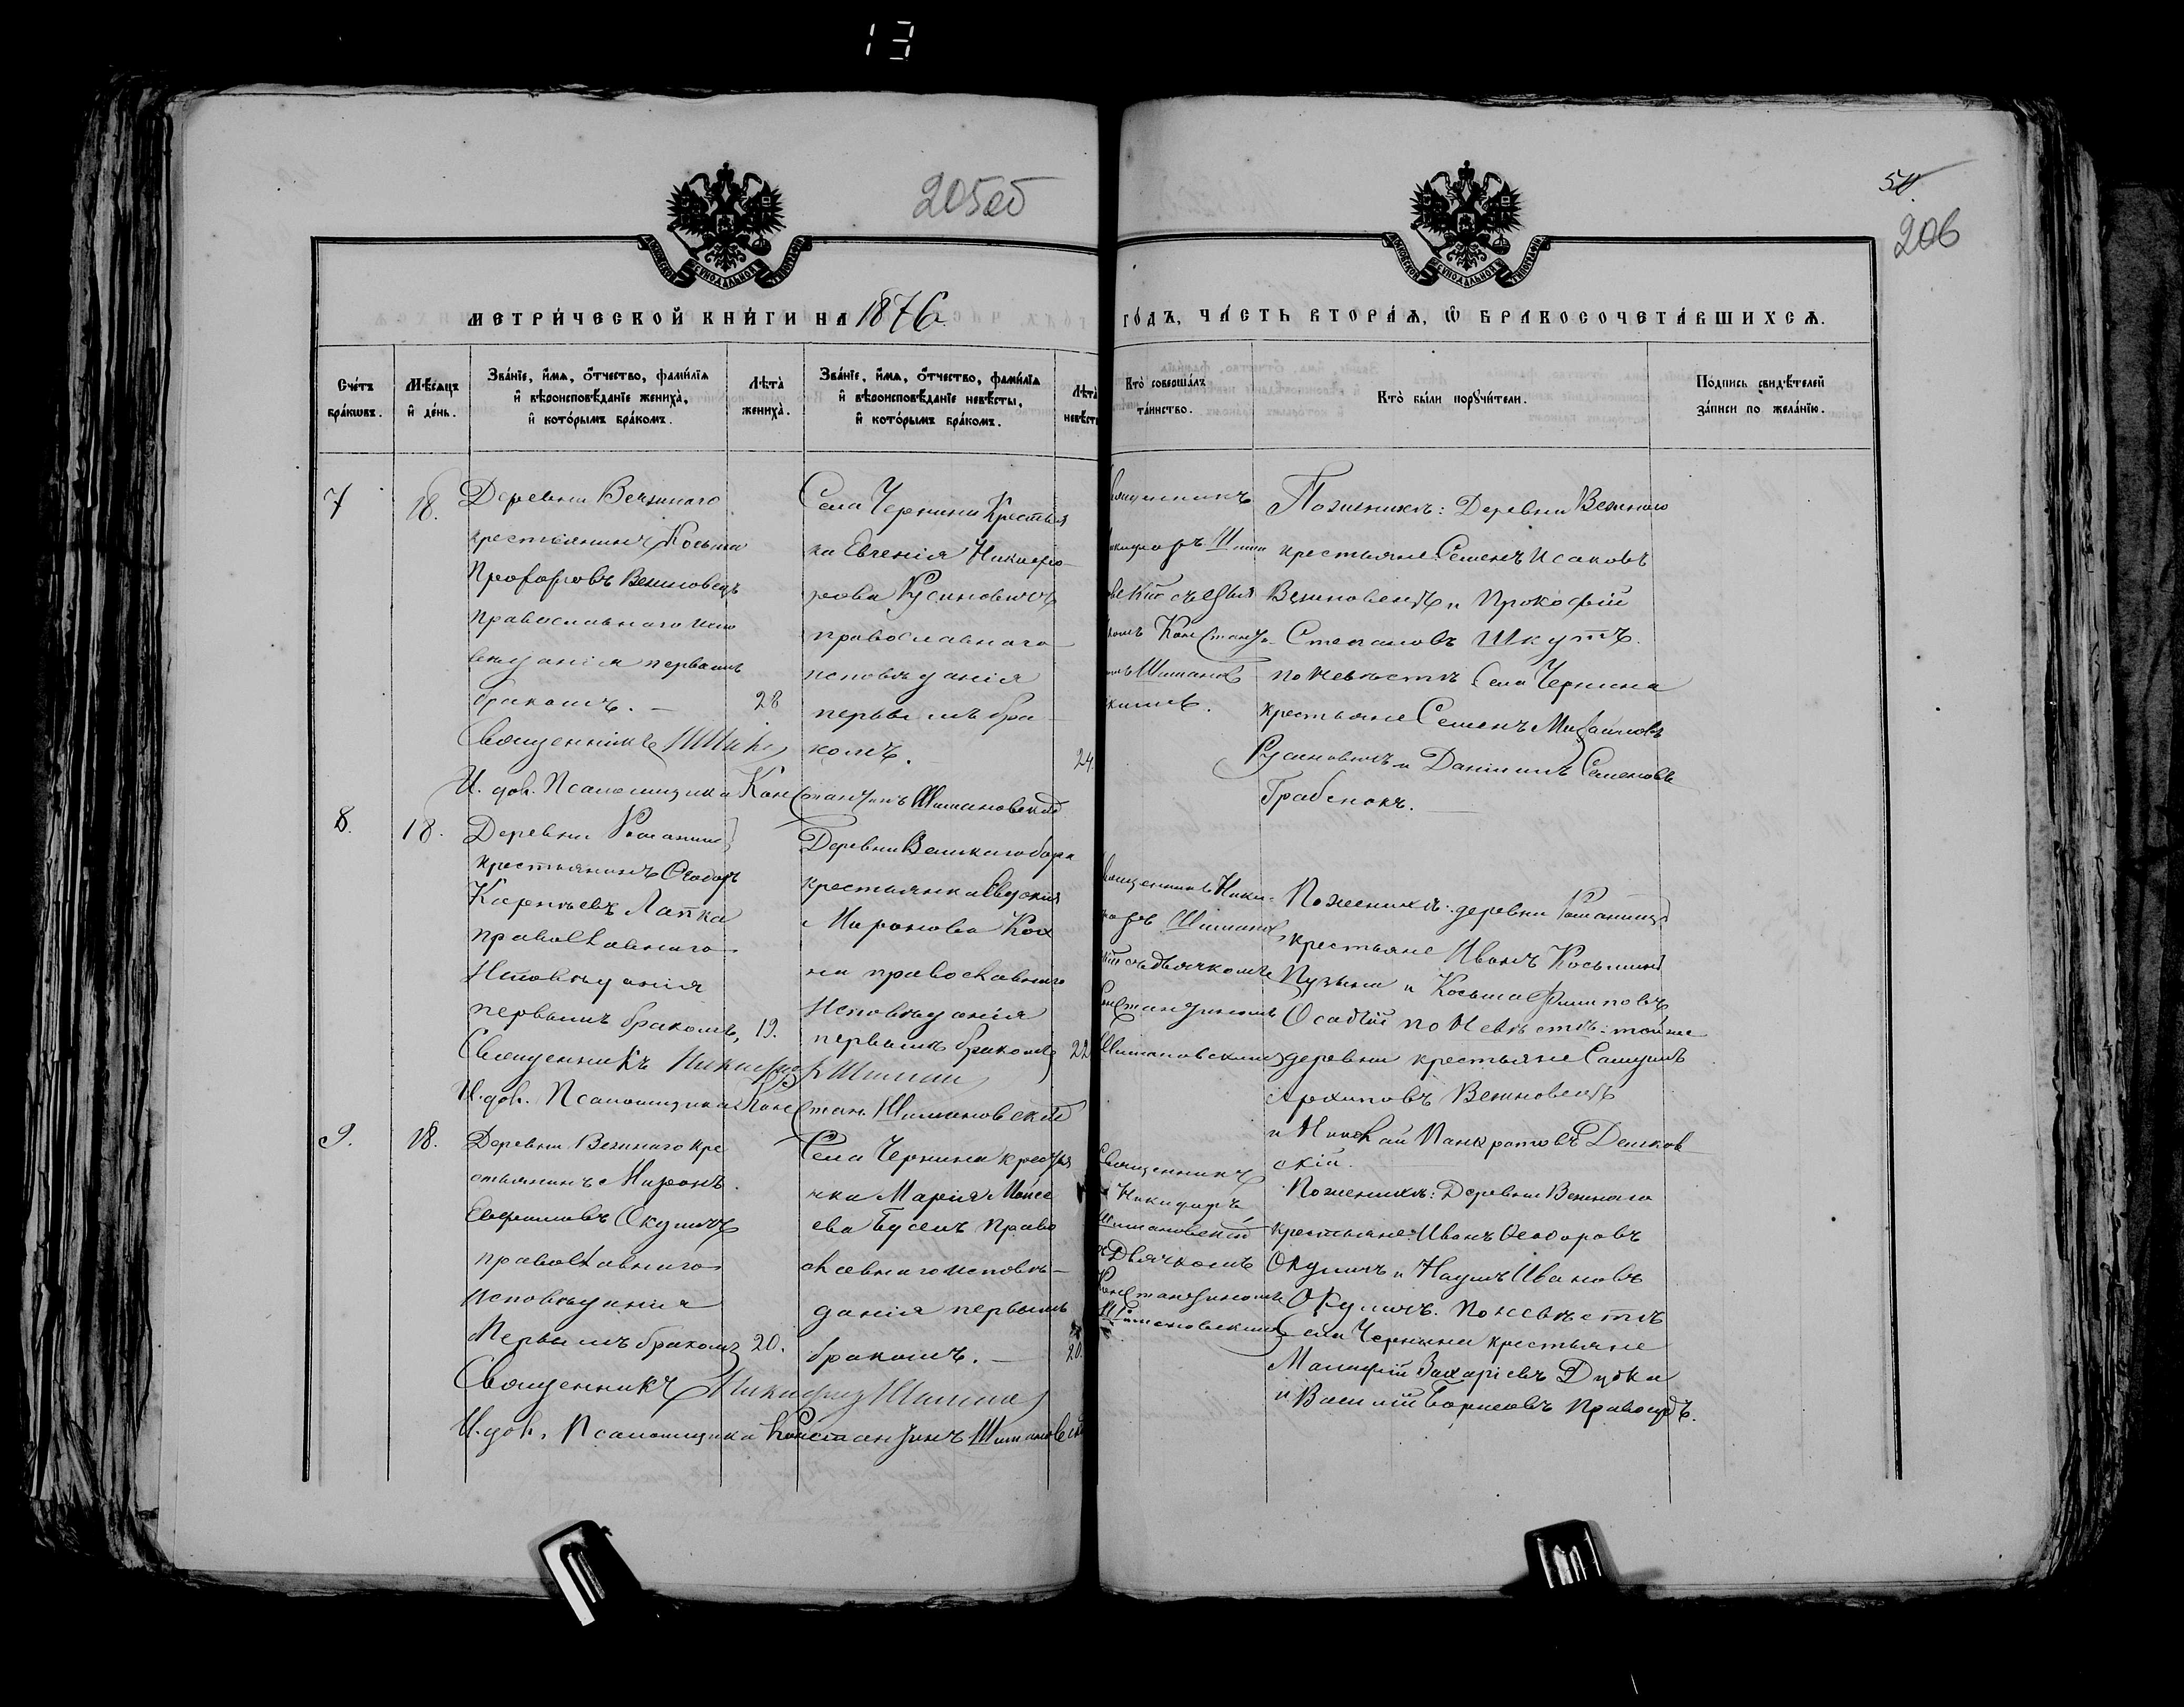 13
205об
50
206
МЕТРИ́ЧЕСКОЙ КНИ́ГИ НА 1876
ГО́ДЪ, ЧА́СТЬ ВТОРА́Ѧ, Ѡ҆ БРАКОСОЧЕТА́ВШИХСѦ.
Сче́тъ бра́кѡвъ.
Мѣ́сѧцъ и҆ де́нь.
Зва́нїе, и҆́мѧ, ѻ҆́тчество, фами́лїѧ
и҆ вѣроисповѣ́данїе жениха̀,
и҆ кото́рымъ бра́комъ.
Лѣта̀
жениха̀.
Зва́нїе, и҆́мѧ, ѻ҆́тчество, фами́лїѧ
и҆ вѣроисповѣ́данїе невѣ́сты,
и҆ кото́рымъ бра́комъ.
Лѣта̀
невѣ́ст
Кто̀ соверша́лъ
та́инство.
Кто̀ бы́ли порꙋчи́тели.
По́дпись свидѣ́телей
за́писи по жела́нїю.
7
18.
Деревни
крестьянинъ Косьма
Прохоровъ
православнаго испо
веданія первымъ
бракомъ. —
28
Священникъ
И. дол. Псаломщика Константинъ Шимановскій
Села Чернина Крестья
ка Евгенія Никифо-
рова Русиновичъ
православнаго
исповѣданія
первымъ бра-
комъ.
24.
Константи-
Шиманов
скимъ.
По женихѣ: Деревни
крестьяне Семенъ Исаковъ
и Прокофій
Степановъ Шкутъ.
по невѣстѣ Села Чернина
крестьяне Семенъ Михайловъ
Русиновичъ и Даніилъ Семеновъ
Грабенокъ.
8.
18.
Деревни
крестьянинъ Ѳеодоръ
Карповъ Лапка
православнаго
Исповѣданія
первымъ бракомъ,
19.
Священникъ Никифоръ Шиман
И. дол. Псаломщика Констан. Шимановскій
Деревни Великаго бора
крестьянка Евдокія
Миронова Кох
на православнаго
Исповѣданія
первымъ бракомъ
22
Священникъ Ники-
форъ Шиманов
кій съ дьячкомъ
Константиномъ
Шимановскимъ
По женихѣ: деревни
крестьяне Иванъ Косьминъ
Пузыня и Косьма Филиповъ
Осадчій по Невѣстѣ: той же
деревни крестьяне Самуилъ
Архиповъ
и Николай Панкратовъ Дешков
скій.
9.
18.
Деревни кре
стьянинъ Миронъ
Ефимовъ Окуличъ
православнаго
исповѣданія
Первымъ бракомъ
20.
Священникъ Никифоръ Шиман
И. дол. Псаломщика Константинъ Шимановскій
Села Чернина крестья
нка Марія Моисе
ева Буселъ Право
славнаго исповѣ-
данія первымъ
бракомъ. —
20.
Священникъ
Никифоръ
Шимановскій
съ Дьячкомъ
Константиномъ
Шимановскимъ
По женихѣ: Деревни
крестьяне: Иванъ Ѳеодоровъ
Окуличъ и Наумъ Ивановъ
Окуличъ. По невѣстѣ
Села Чернина крестьяне
Захаріевъ Дудка
и Василій Борисовъ Правосудъ.